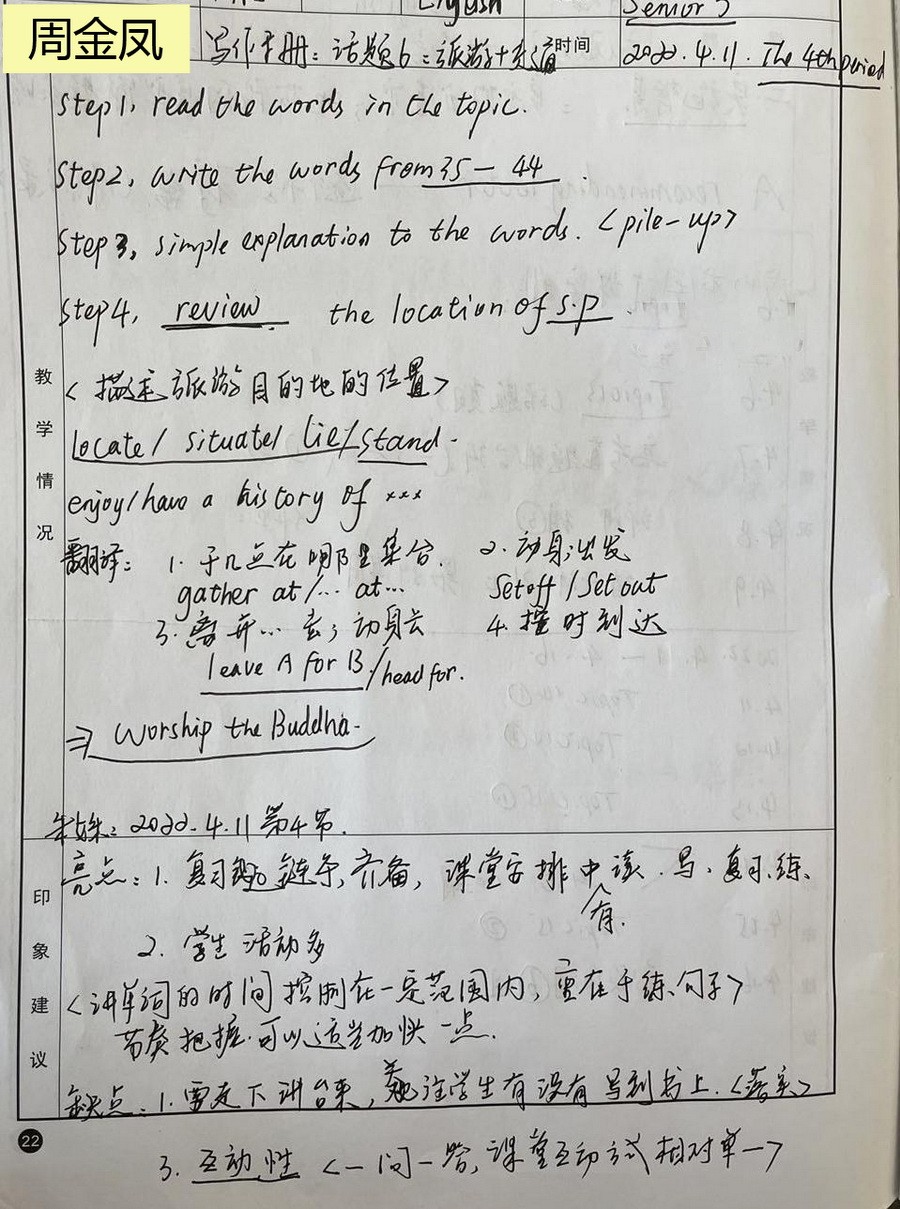 English
Senior 3
周金凤
写作手册：话题6：旅游+交通 时间 2022.4.11. The 4th period
Step1, read the words in the topic.
Step2, write the words from 35 — 44.
Step3, simple explanation to the words. <pile-up>
Step4, review the location of s.p.
<描述旅游目的地的位置>
locate/ situate/ lie/ stand.
enjoy/have a history of ×××
翻译：1. 于几点在哪里集合. 2. 动身；出发
gather at/... at... Set off / Set out
3. 离开... 去；动身去 4. 按时到达
leave A for B /head for.
⇒ Worship the Buddha.
教学情况
2022.4.11 第4节.
亮点：1. 复习链条, 齐备, 课堂安排中有读、写、复习、练、
2. 学生活动多
<讲单词的时间控制在一定范围内, 重在于练句子>
节奏把握. 可以适当加快一点.
缺点：1. 需走下讲台来, 关注学生有没有写到书上. <落实>
印象建议
22
3. 互动性 <一问一答, 课堂互动方式相对单一>